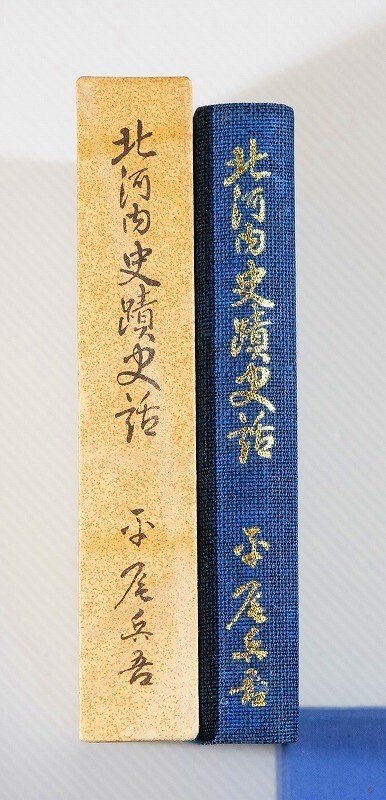 北河内史蹟史話 平尾兵吾
北河内史蹟史話 平尾兵吾